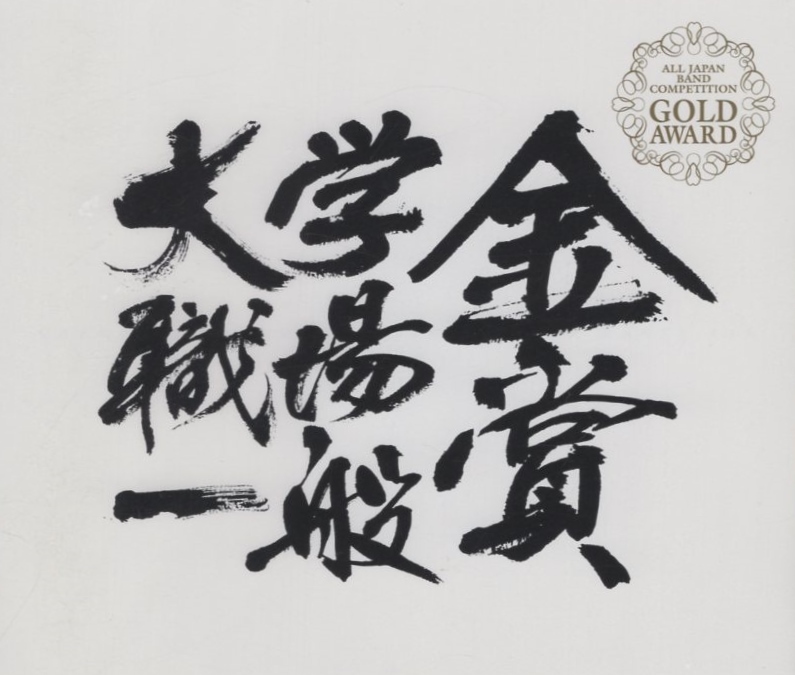 金賞
大学
職場
一般
ALL JAPAN
BAND
COMPETITION
GOLD
AWARD